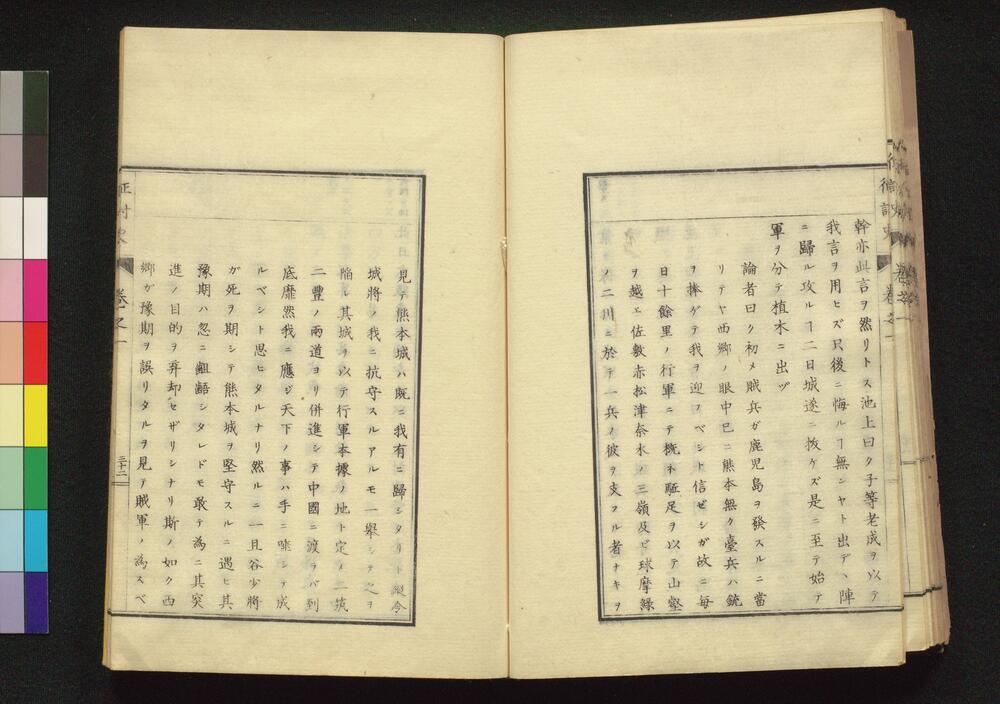 幹亦此言ヲ然リトス池上曰ク子等老成ヲ以テ
我言ヲ用ヒズ只後ニ悔ルヿ無ンヤト出デヽ陣
ニ歸ル攻ルヿ二日城遂ニ拔ケズ是ニ至テ始テ
軍ヲ分テ植木ニ出ヅ
論者曰ク初メ賊兵ガ鹿児島ヲ發スルニ當
リテヤ西郷ノ眼中已ニ熊本無ク臺兵ハ銃
ヲ捧ゲテ我ヲ迎フベシト信ゼシガ故ニ毎
日十餘里ノ行軍ニテ概ネ駈足ヲ以テ山壑
ヲ越エ佐敷赤松津奈木ノ三嶺及ビ球摩綠
ノ二川ニ於テ一兵ノ彼ヲ支フル者ナキヲ
見テ熊本城ハ既ニ我有ニ歸シタリト縱令
城將ノ我ニ抗守スルアルモ一舉シテ之ヲ
陥レ其城ヲ以テ行軍本據ノ地ト定メ二筑
二豐ノ兩道ヨリ併進シテ中國ニ渡ラバ到
底靡然我ニ應ジ天下ノ事ハ手ニ唾シテ成
ルベシト思ヒタルナリ然ルニ一旦谷少將
ガ死ヲ期シテ熊本城ヲ堅守スルニ遇ヒ其
豫期ハ忽ニ齟齬シタレドモ敢テ為ニ其突
進ノ目的ヲ弃却セザリシナリ斯ノ如ク西
郷ガ豫期ヲ誤リタルヲ見テ賊軍ノ為スベ
征討史
卷之一
三十二